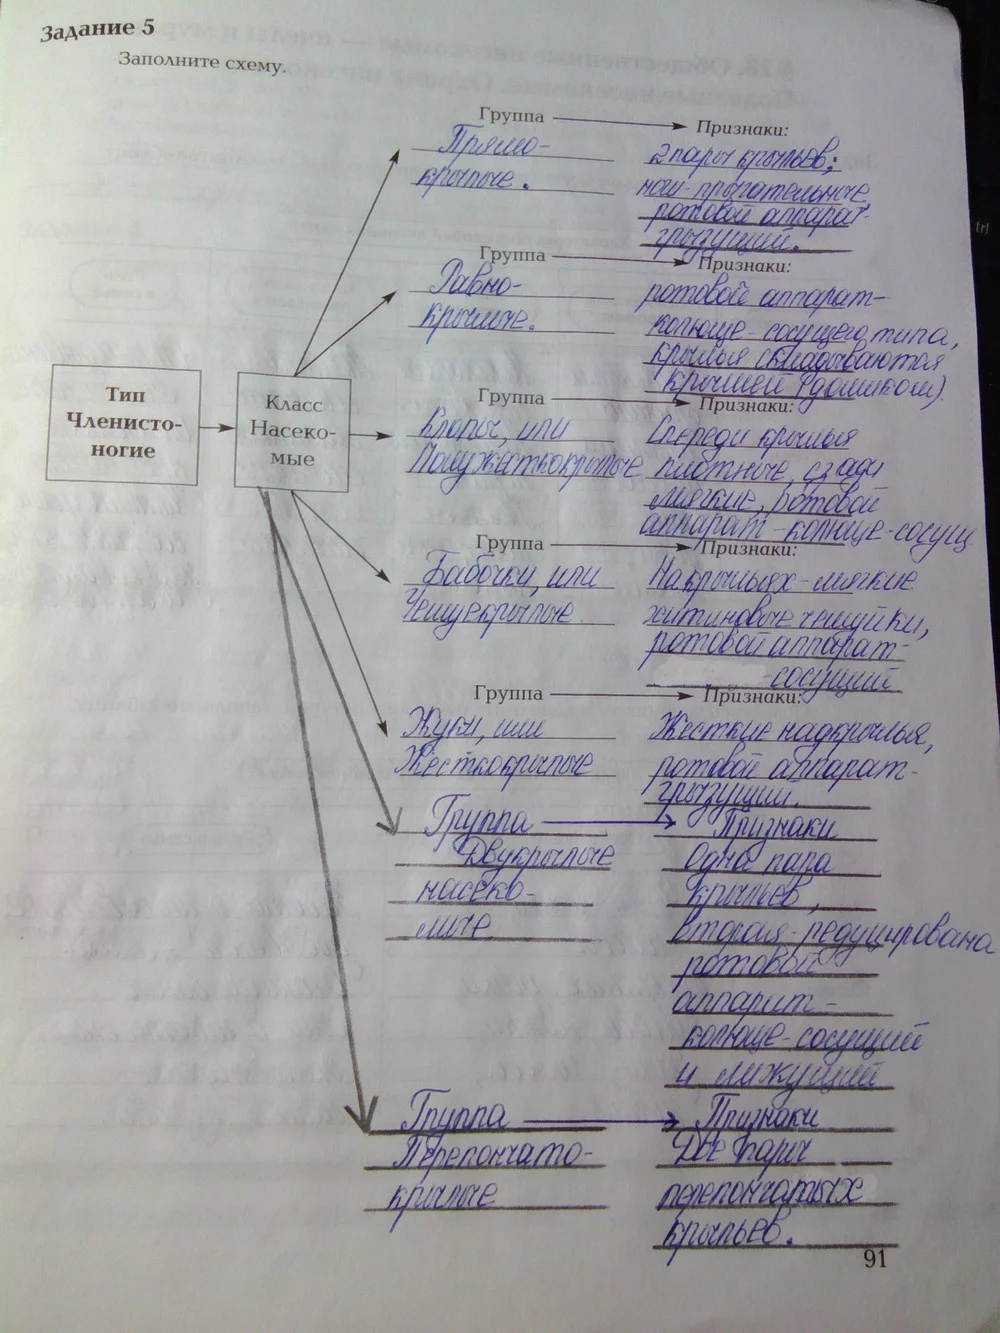 Задание 5
Заполните схему.
Группа Признаки:
Прямо- 2 пары крыльев;
крылые. ноги-прыгательные
ротовой аппарат-
грызущий.
Группа Признаки:
Равно- ротовой аппарат-
крылые. колюще-сосущего типа,
крылья складываются
крышей (домиком).
Тип
Членисто-
ногие
Класс
Насеко-
мые
Группа Признаки:
Клопы, или Спереди крылья
Полужесткокрылые плотные, сзади
мягкие, ротовой
аппарат-колюще-сосущ
Группа Признаки:
Бабочки, или На крыльях-мягкие
Чешуекрылые хитиновые чешуйки,
ротовой аппарат-
-сосущий
Группа Признаки:
Жуки, или Жесткие надкрылья,
Жесткокрылые ротовой аппарат-
грызущий.
Группа Признаки
Двукрылые Одна пара
насеко- крыльев,
мые вторая-редуцирована
ротовой
аппарат-
колюще-сосущий
и лижущий
Группа Признаки
Перепончато- Две пары
крылые перепончатых
крыльев.
91